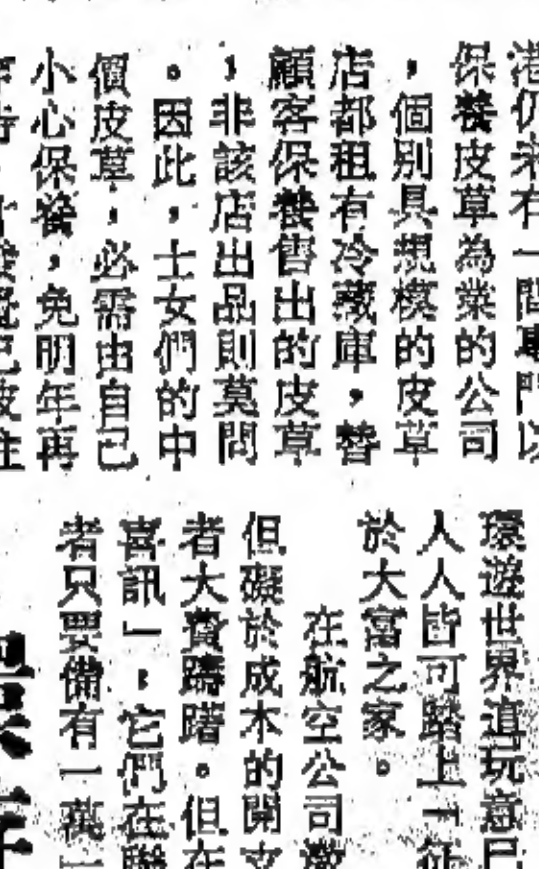 港仍未有一間專門以
保養皮草為業的公司
，個別具規模的皮草
店都租有冷藏庫，替
顧客保養售出的皮草
，非該店出品則莫問
。因此，士女們的中
價皮草，必需由自己
小心保養，免明年再
環遊世界這玩意已
人人皆可踏上一征
於大富之家。
在航空公司
但礙於成本的開支
者大費躊躇。但在
喜訊」，它們在聯
者只要備有一萬一